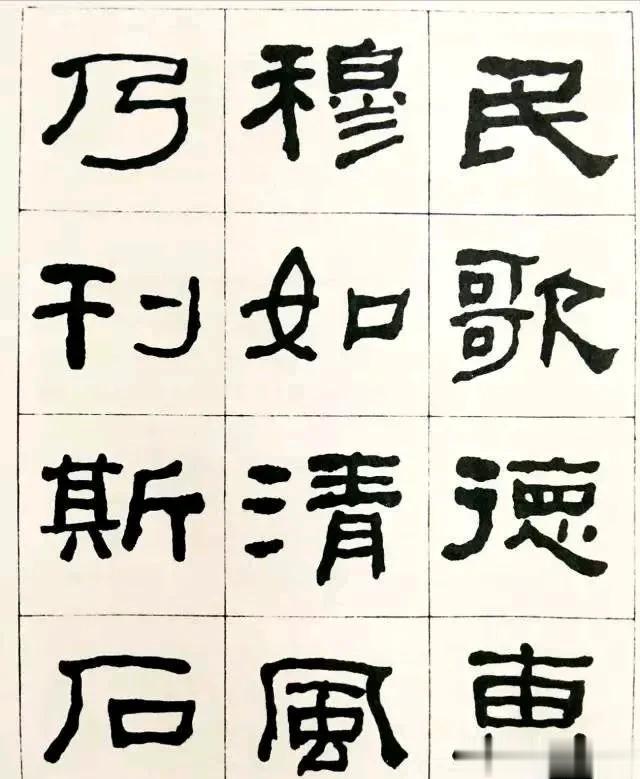 民歌德
穆如清風
乃刊斯石